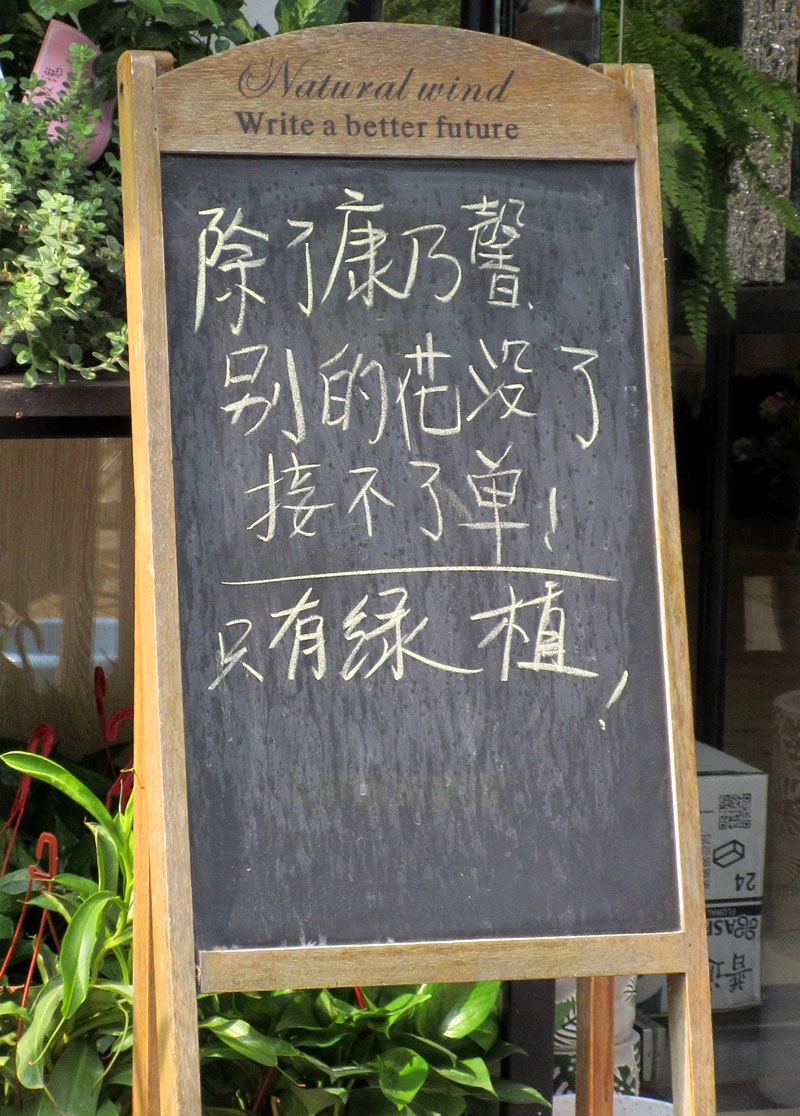 Natural wind
Write a better future
除了康乃馨
别的花没了
接不了单!
只有绿植!
24